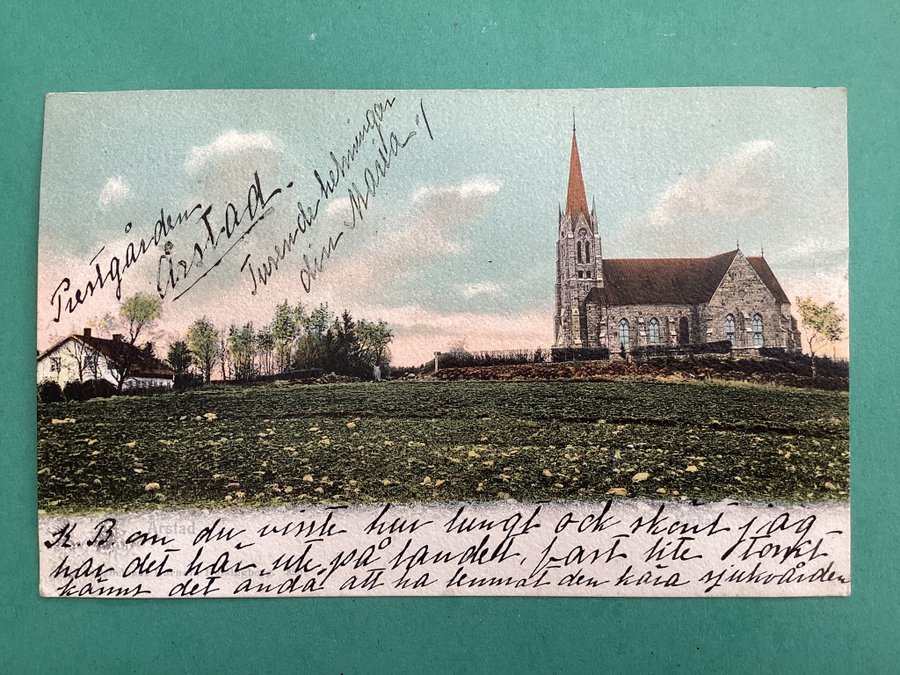 Prestgården
Årstad.
Tusende helsningar
din Maria
K. B om du visste hur lungt ock skönt jag
har det här ute på landet, fast lite torkt
känns det ändå att ha lemnat den kära sjukvården
Årstad